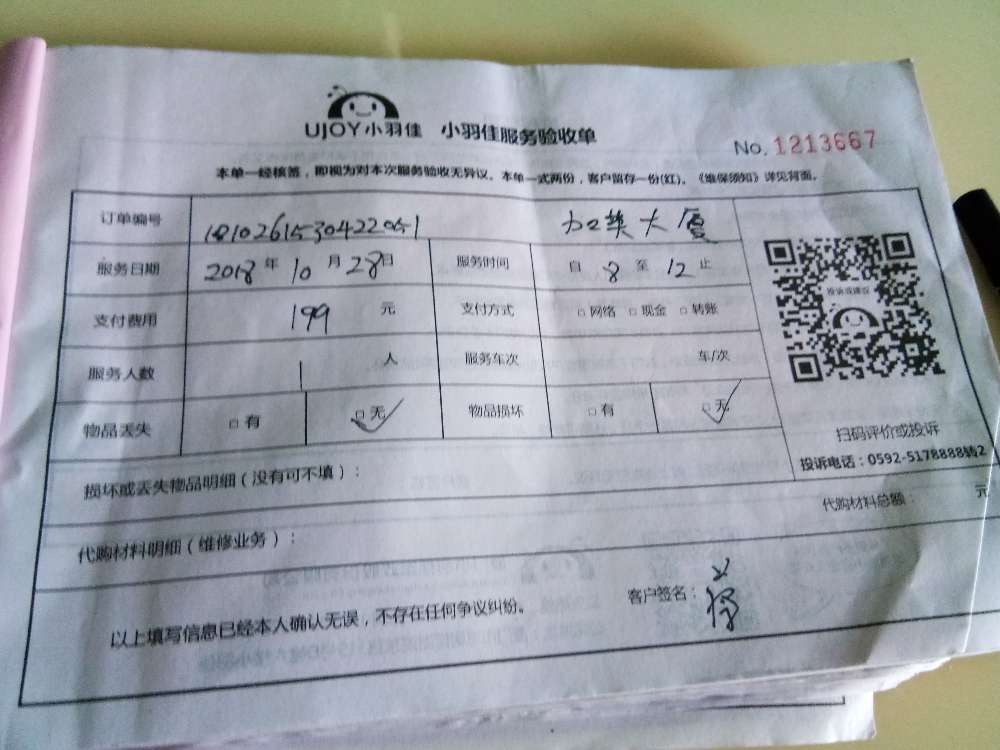 UJOY小羽佳 小羽佳服务验收单
No. 1213667
本单一经核签，即视为对本次服务验收无异议。本单一式两份，客户留存一份(红)。《维保须知》详见背面。
订单编号 大厦
服务日期 2018年10月28日 服务时间 自8至12止
投诉或建议
支付费用 199元 支付方式 □网络 □现金 □转账
服务人数 1人 服务车次 车/次
物品丢失 □有 □无✓ 物品损坏 □有 □无✓
扫码评价或投诉
投诉电话：0592-5178888转2
损坏或丢失物品明细（没有可不填）：
代购材料明细（维修业务）： 代购材料总额： 元
以上填写信息已经本人确认无误，不存在任何争议纠纷。 客户签名：